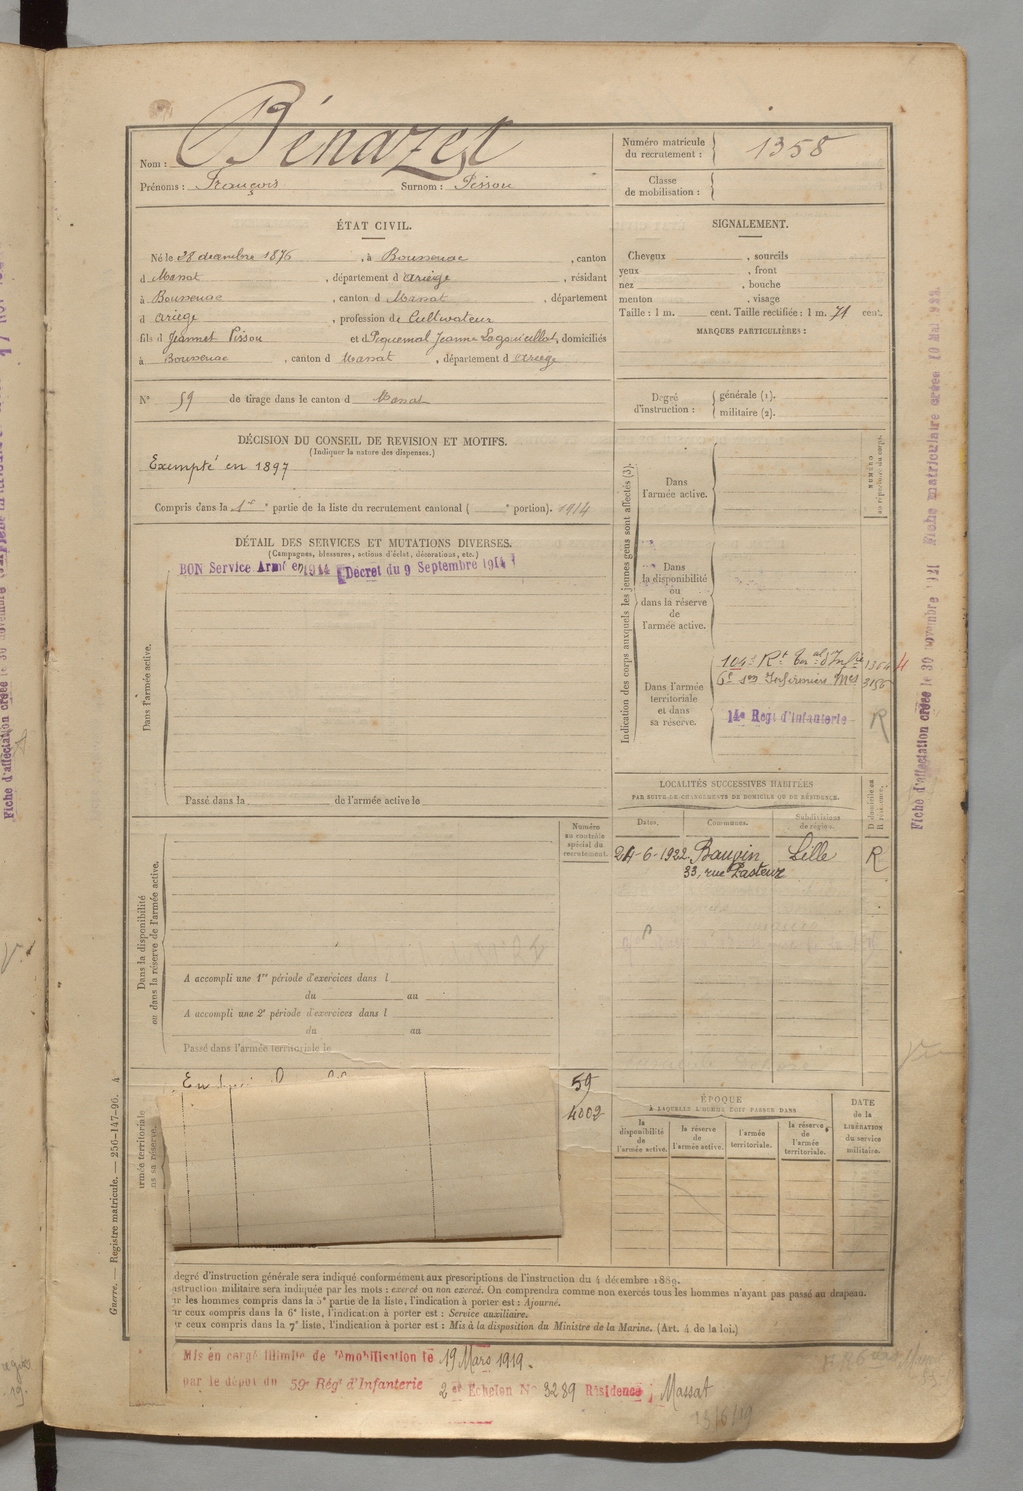 Nom : Bénazet
Prénoms : François Surnom : Pissou
Numéro matricule du recrutement : 1358
Classe de mobilisation :
ÉTAT CIVIL.
Né le 28 décembre 1876, à Boussenac, canton
d Massat, département d Ariège, résidant
à Boussenac, canton d Massat, département
d Ariège, profession de Cultivateur
fils d Jeannet Pissou et d Piquemal Jeanne Lagouteillat, domiciliés
à Boussenac, canton d Massat, département d Ariège
N° 59 de tirage dans le canton d Massat
SIGNALEMENT.
Cheveux , sourcils
yeux , front
nez , bouche
menton , visage
Taille : 1 m. cent. Taille rectifiée : 1 m. 71 cent.
MARQUES PARTICULIÈRES :
Degré d'instruction : générale (1). militaire (2).
DÉCISION DU CONSEIL DE REVISION ET MOTIFS.
(Indiquer la nature des dispenses.)
Exempté en 1897
Compris dans la 1re partie de la liste du recrutement cantonal ( e portion). 1914
DÉTAIL DES SERVICES ET MUTATIONS DIVERSES.
(Campagnes, blessures, actions d'éclat, décorations, etc.)
BON Service Armé en 1914 Décret du 9 Septembre 1914
Dans l'armée active.
Passé dans la de l'armée active le
Indication des corps auxquels les jeunes gens sont affectés (3).
NUMÉRO au répertoire du corps.
Dans l'armée active.
Dans la disponibilité ou dans la réserve de l'armée active.
Dans l'armée territoriale et dans sa réserve.
104e Rt Ter.al d'Infrie 1364
6e son Infirmiers Mes 3156
14e Regt d'Infanterie R
LOCALITÉS SUCCESSIVES HABITÉES
PAR SUITE DE CHANGEMENTS DE DOMICILE OU DE RÉSIDENCE.
D domicile R résidence.
Dates. Communes. Subdivisions de région.
24-6-1922 Bauvin Lille R
33, rue Pasteur
Numéro au contrôle spécial du recrutement.
Dans la disponibilité ou dans la réserve de l'armée active.
A accompli une 1re période d'exercices dans l
du au
A accompli une 2e période d'exercices dans l
du au
Passé dans l'armée territoriale le
59
4002
armée territoriale
ns sa réserve.
ÉPOQUE
À LAQUELLE L'HOMME DOIT PASSER DANS
la disponibilité de l'armée active.
la réserve de l'armée active.
l'armée territoriale.
la réserve de l'armée territoriale.
DATE de la LIBÉRATION du service militaire.
degré d'instruction générale sera indiqué conformément aux prescriptions de l'instruction du 4 décembre 1889.
nstruction militaire sera indiquée par les mots : exercé ou non exercé. On comprendra comme non exercés tous les hommes n'ayant pas passé au drapeau.
ur les hommes compris dans la 5e partie de la liste, l'indication à porter est : Ajourné.
ur ceux compris dans la 6e liste, l'indication à porter est : Service auxiliaire.
ur ceux compris dans la 7e liste, l'indication à porter est : Mis à la disposition du Ministre de la Marine. (Art. 4 de la loi.)
Mis en congé illimité de démobilisation le 19 Mars 1919.
par le dépôt du 59e Régt d'Infanterie 2e Echelon N° 3289 Résidence : Massat
13/6/19
Guerre. — Registre matricule. — 256-147-96. 4
Fiche d'affectation créée le 30 novembre 1921 Fiche matriculaire créée 10 Mai 1922.
Fiche d'affectation créée le 30 novembre